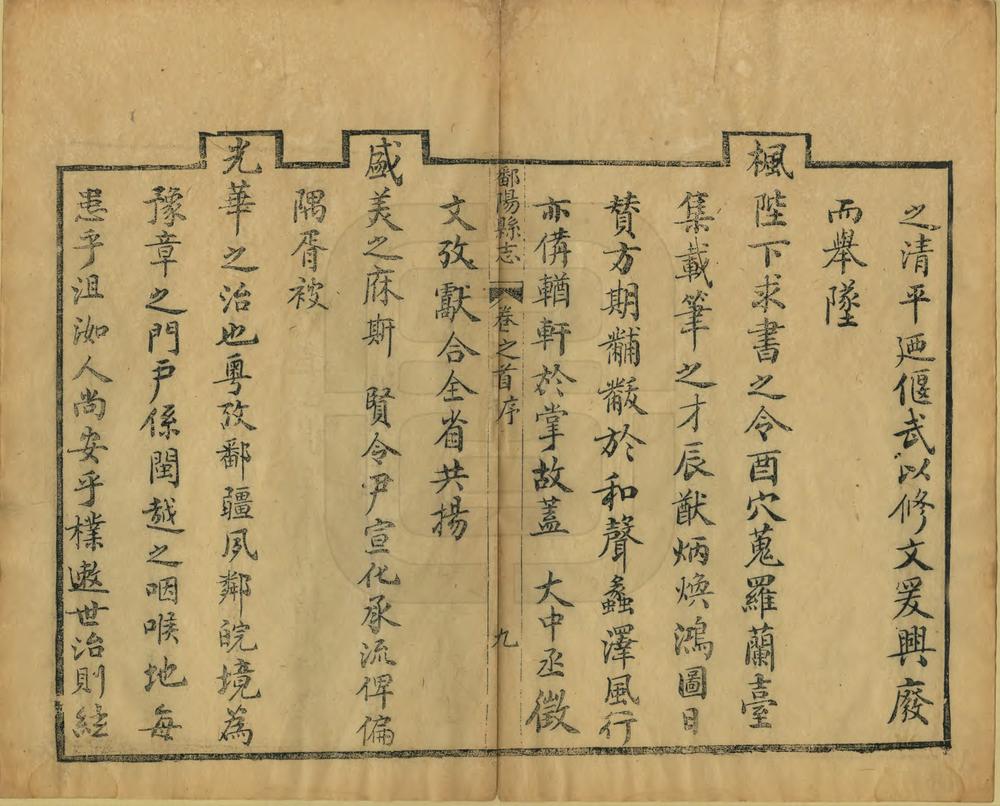 之清平廼偃武以修文爰興廢
而舉墜
楓陛下求書之令酉穴蒐羅蘭臺
集載筆之才辰猷炳煥鴻圖日
賛方期黼黻於和聲螽澤風行
亦偹輶軒於掌故蓋 大中丞徵
鄱陽縣志 卷之首序 九
文攷獻合全省共揚
盛美之庥斯 賢令尹宣化承流俾偏
隅胥被
光華之治也粵攷鄱疆夙鄰皖境為
豫章之門戶係閩越之咽喉地每
患乎沮洳人尚安乎樸遫世治則絃